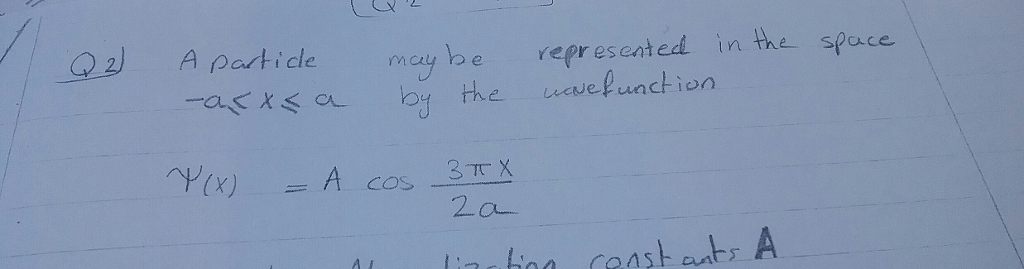 Q2) A particle may be represented in the space
-a ≤ x ≤ a by the wavefunction
Ψ(x) = A cos 3πx
2a
constants A